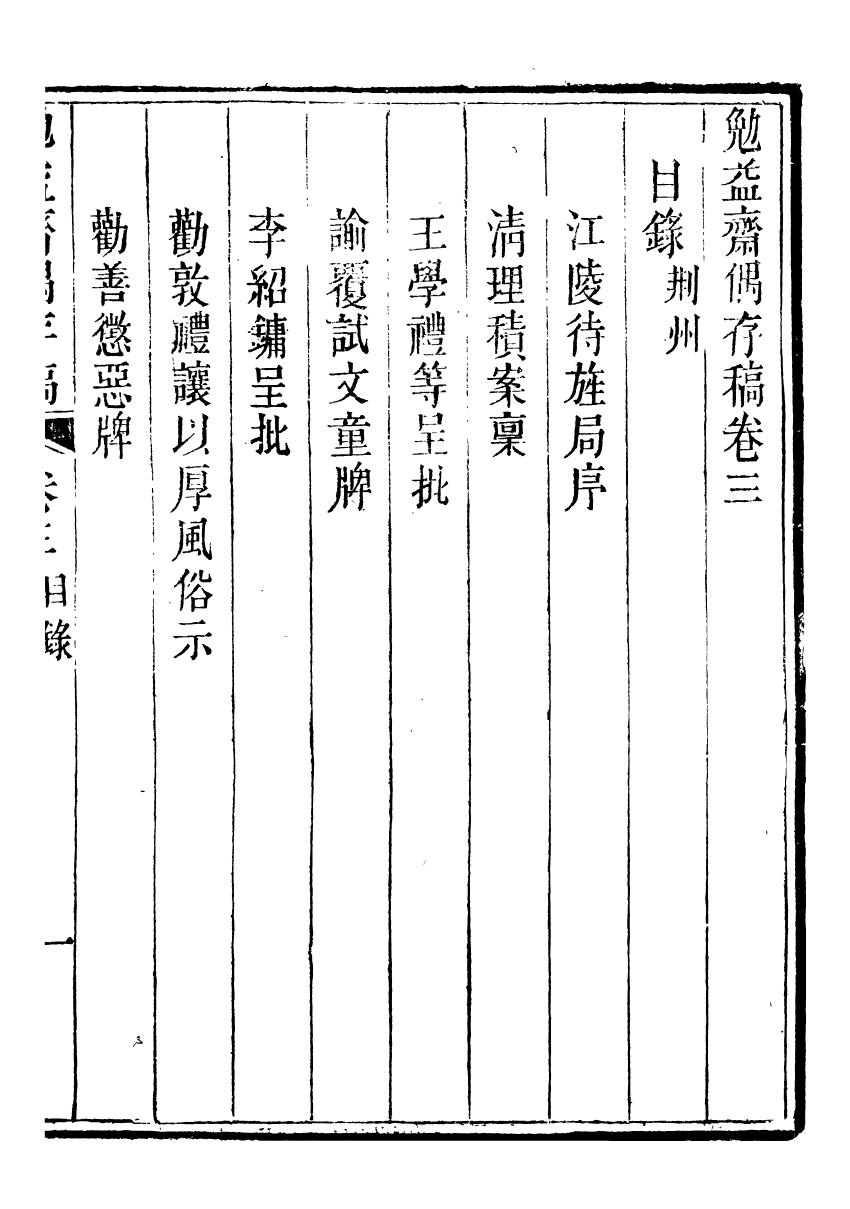 勉益齋偶存稿卷三
目錄 荆州
江陵待旌局序
淸理積案稟
王學禮等呈批
諭覆試文童牌
李紹鏞呈批
勸敦禮讓以厚風俗示
勸善懲惡牌
勉益齋偶存稿 卷三 目錄 一